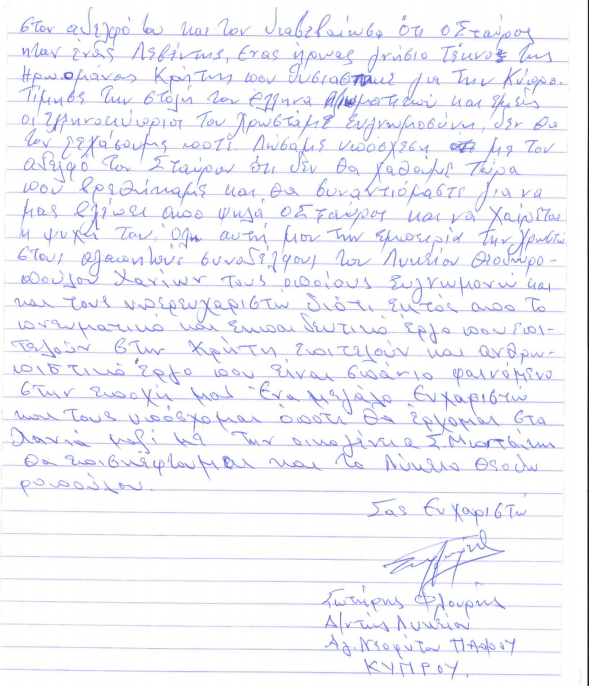 στον αδελφό του και τον διαβεβαίωσα ότι ο Σταύρος
ηταν ένας Λεβέντης, ένας ήρωας γνήσιο Τέκνο της
Ηρωομάνας Κρήτης που θυσιάστηκε για την Κύπρο.
Τίμησε την στολή του Ελληνα Αξιωματικού και εμείς
οι Ελληνοκύπριοι του χρωστάμε Ευγνωμοσύνη, δεν θα
τον ξεχάσουμε ποτέ Δώσαμε υπόσχεση με τον
αδελφό του Σταύρου ότι δεν θα χαθούμε Τώρα
που βρεθήκαμε και θα συναντιόμαστε για να
μας βλέπει απο ψηλά ο Σταύρος και να χαίρεται
η ψυχή του. Ολη αυτή μου την εμπειρία την χρωστώ
στους αγαπητούς συναδέλφους του Λυκείου Θεοδωρο-
πούλου Χανίων τους οποίους Ευγνωμονώ και
και τους υπερευχαριστώ διότι εκτός απο το
πνευματικό και εκπαιδευτικό έργο που επι-
τελούν στην Κρήτη επιτελούν και ανθρω-
πιστικό έργο που είναι σπάνιο φαινόμενο
στην εποχή μας Ένα μεγάλο Ευχαριστώ
και τους υπόσχομαι όποτε θα έρχομαι στα
Χανιά μαζί με την οικογένεια Σ.
θα επισκέφτομαι και το Λύκειο Θεοδω
ροπούλου.
Σας Ευχαριστώ
Σωτήρης Φλουρής
Δ/ντής Λυκείου
Αγ. Νεοφύτου ΠΑΦΟΥ
ΚΥΠΡΟΥ.